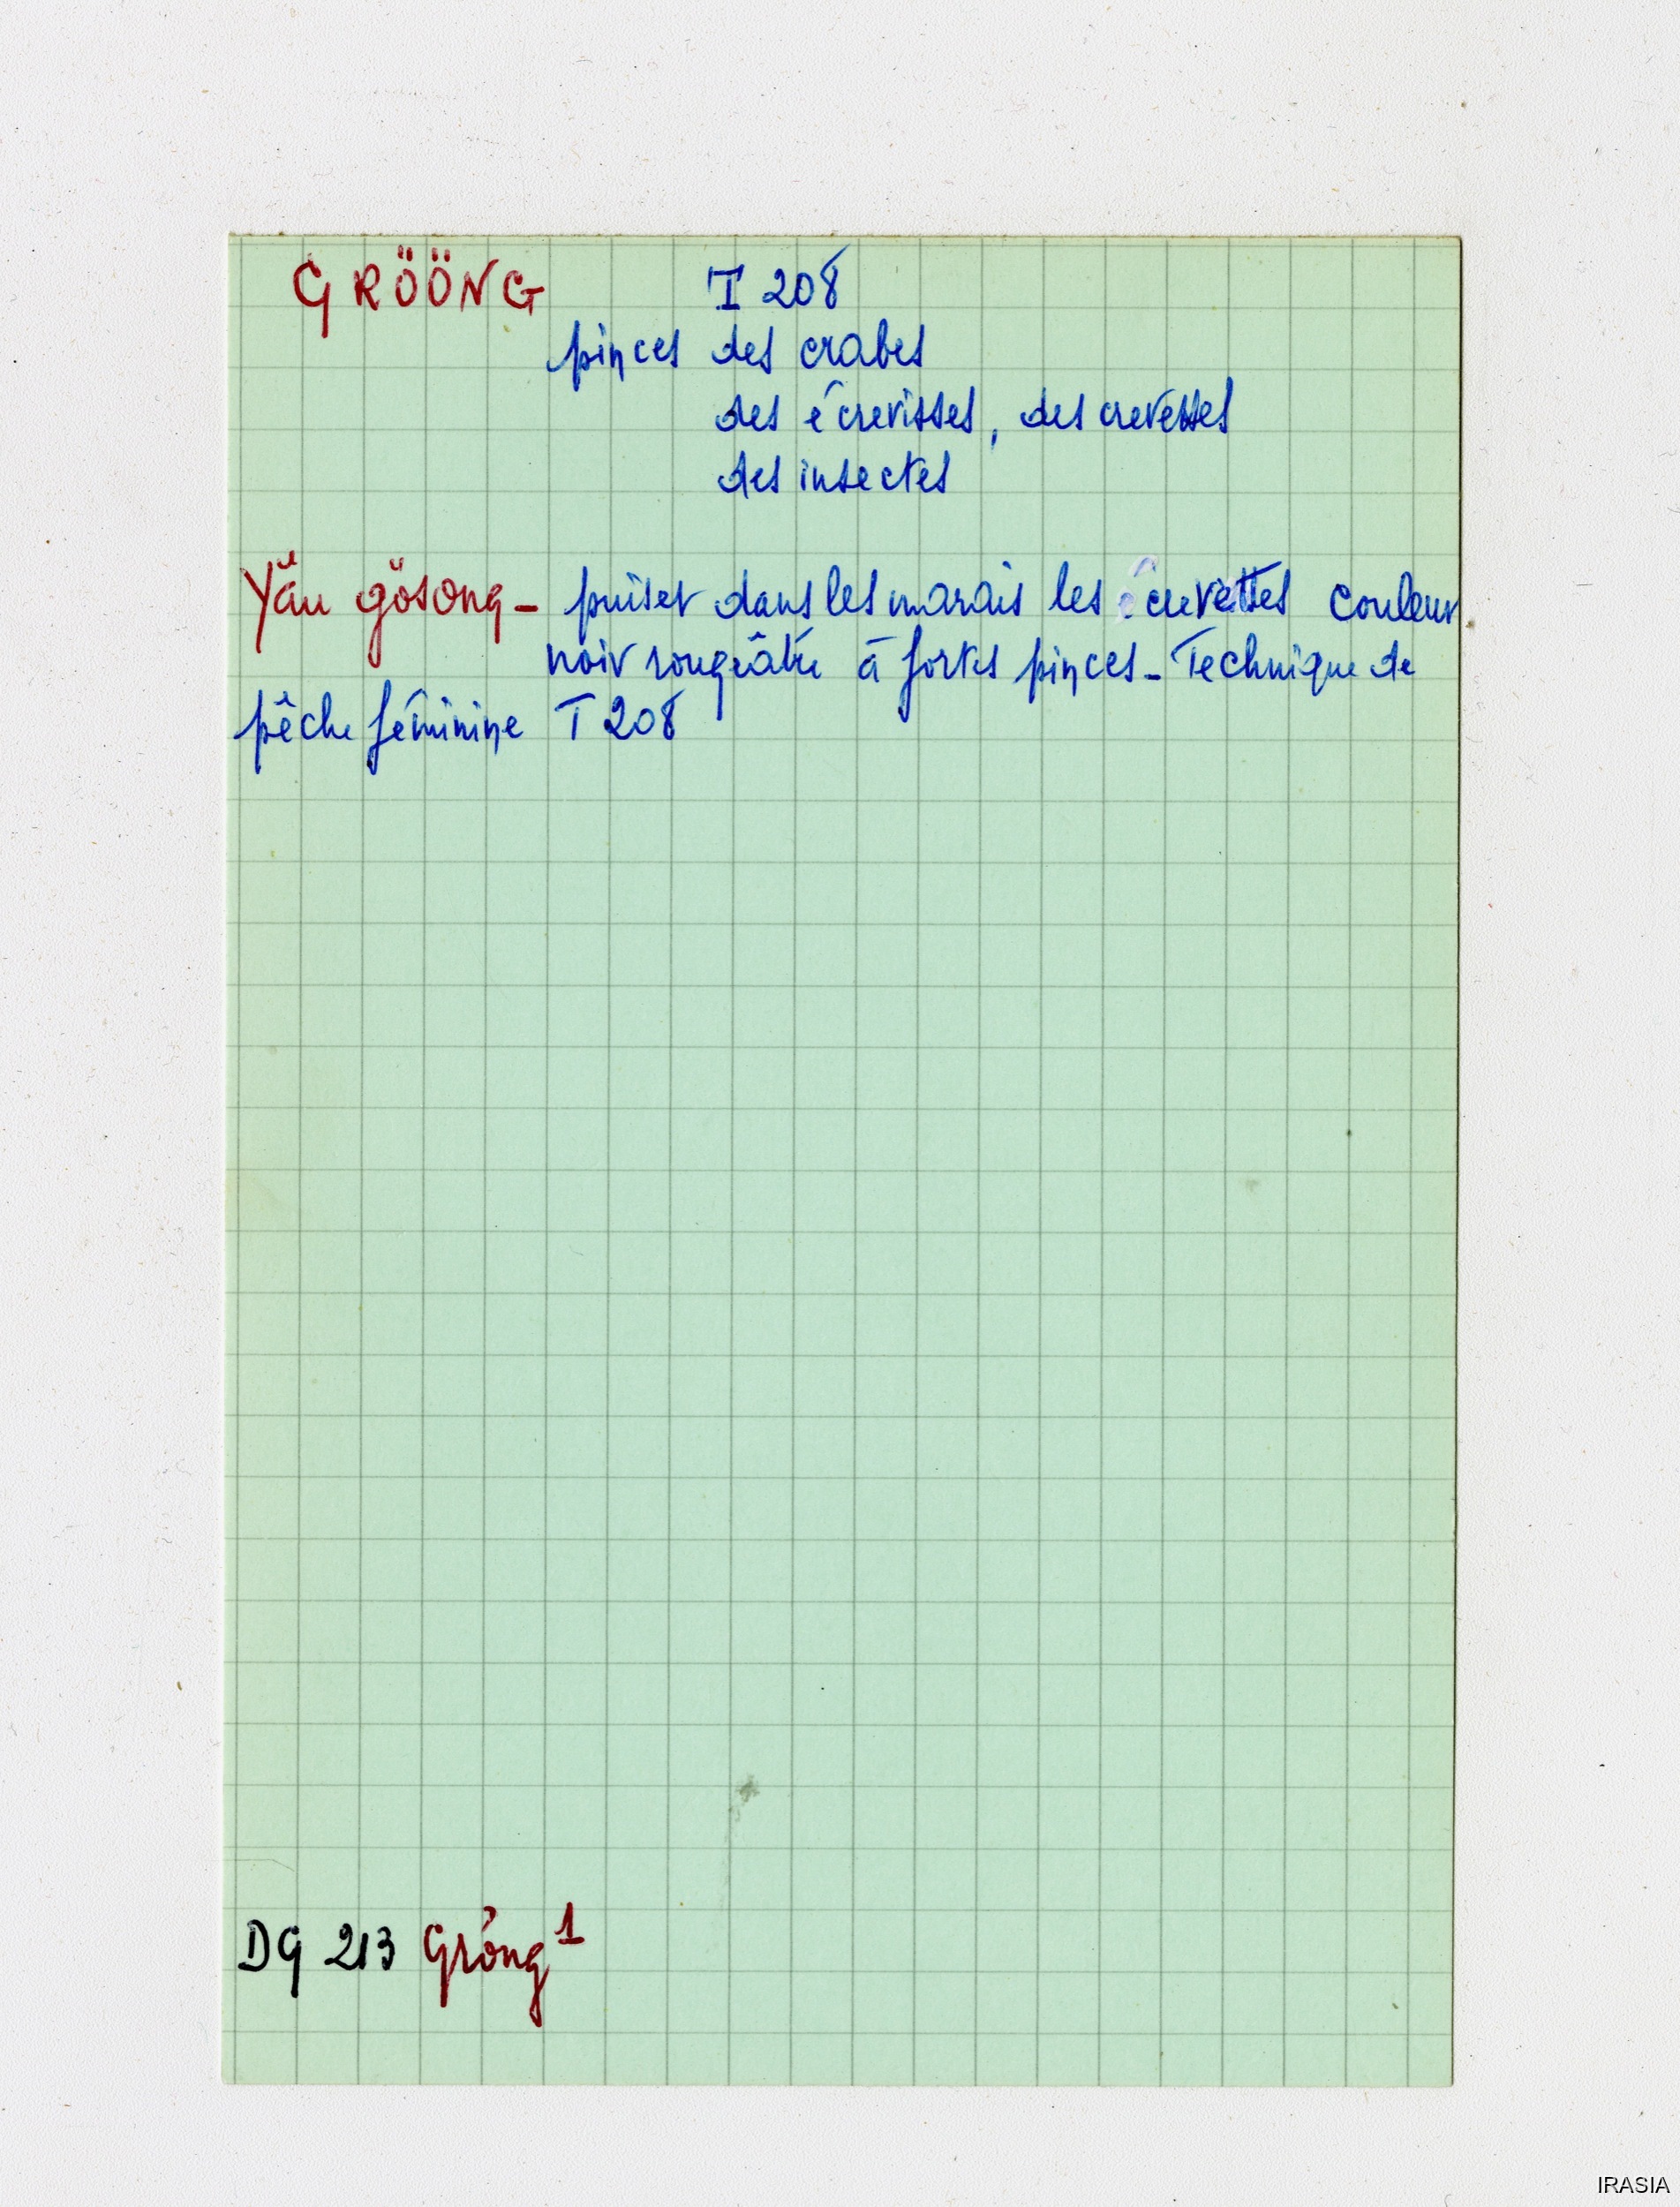 GRÖÖNG T 208
pinces des crabes
des écrevisses, des crevettes
des insectes
gösong – puiser dans les marais les crevettes couleur
noir rougeâtre à fortes pinces – Technique de
pêche féminine T 208
DG 213
IRASIA